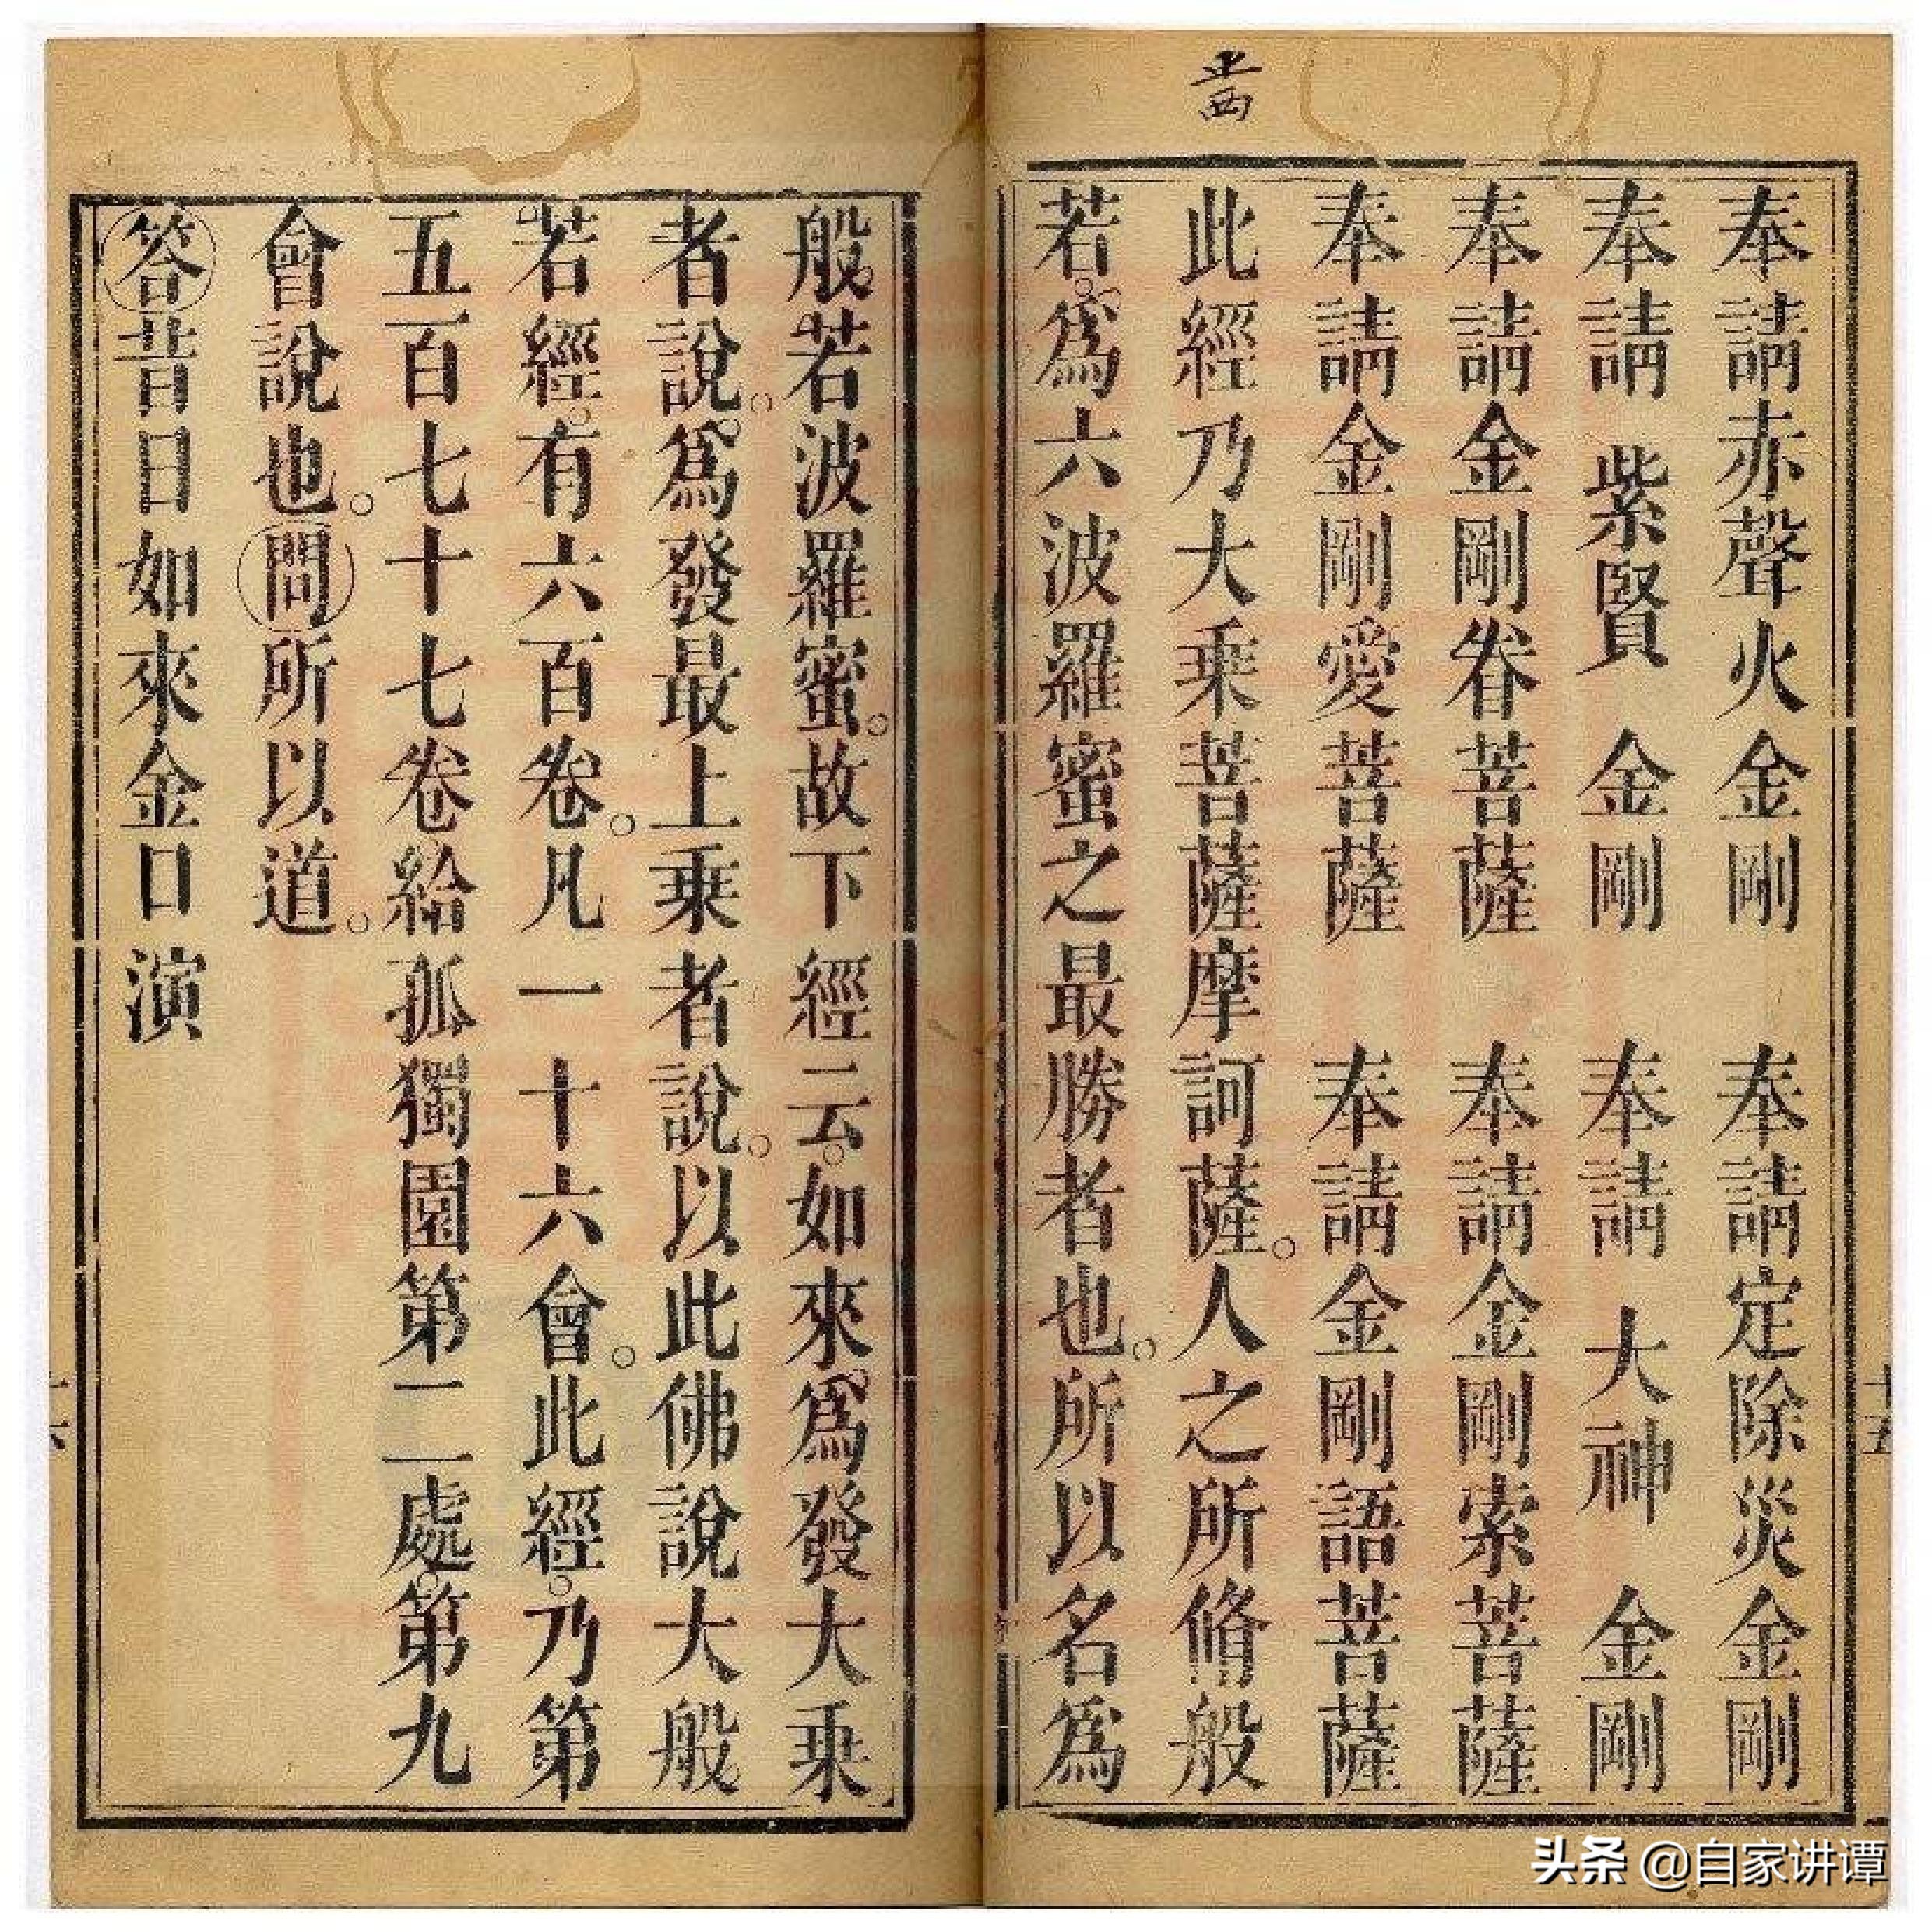 奉請赤聲火金剛　奉請定除災金剛
奉請紫賢金剛　奉請大神金剛
奉請金剛眷菩薩　奉請金剛索菩薩
奉請金剛愛菩薩　奉請金剛語菩薩
此經乃大乘菩薩摩訶薩。人之所脩般
若。為六波羅蜜之最勝者也。所以名為
般若波羅蜜。故下經云。如來為發大乘
者說。為發最上乘者說。以此佛說大般
若經。有六百卷。凡一十六會。此經。乃第
五百七十七卷給孤獨園第二處。第九
會說也。問所以道。
答昔日如來金口演
十五
头条 @自家讲谭